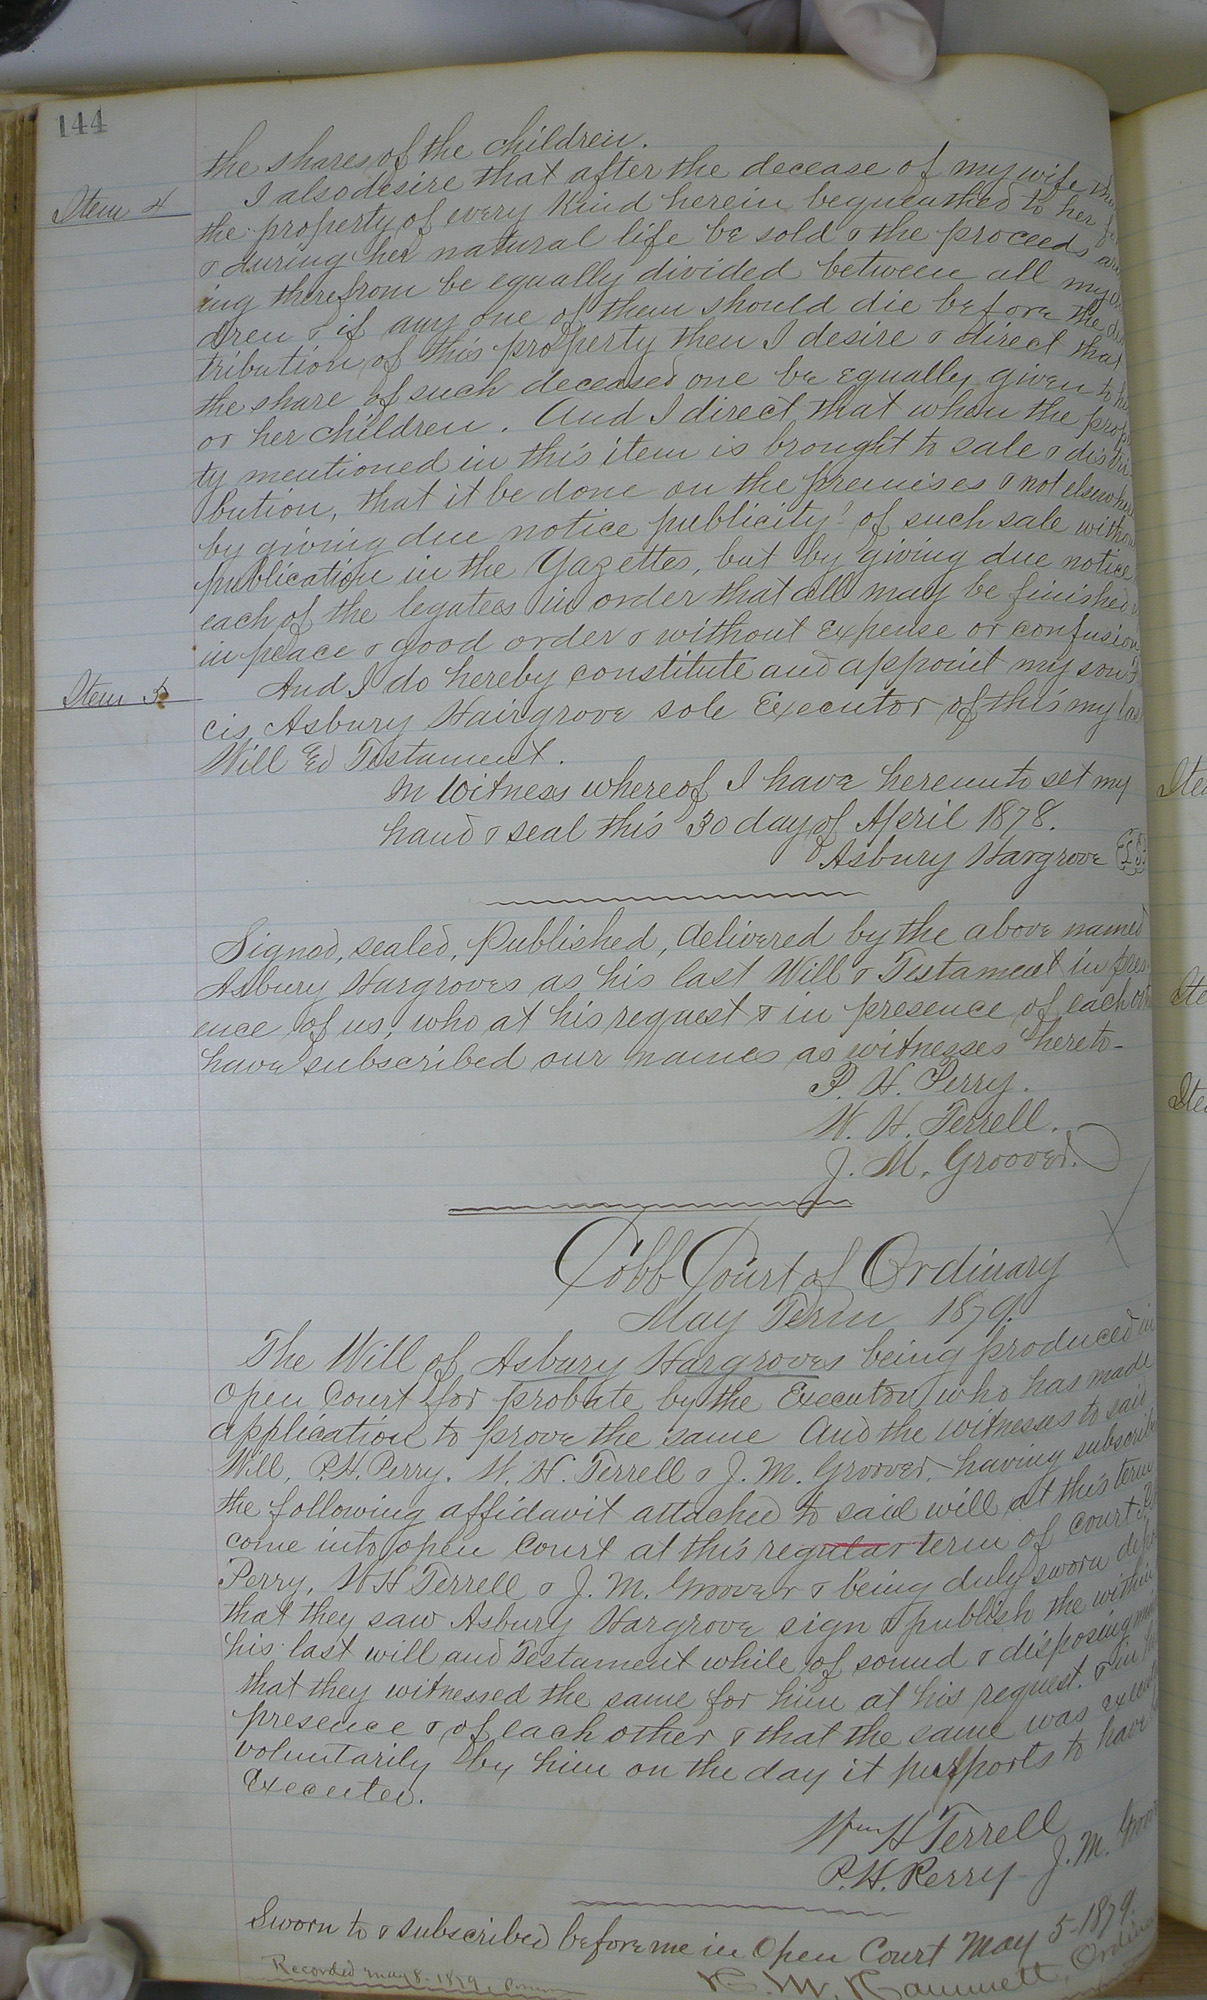 144
the shares of the children.
Item 4
I also desire that after the decease of my wife
the property of every Kind herein bequeathed to her
& during her natural life be sold & the proceeds
ing therefrom be equally divided between all my
dren & if any one of them should die before the
tribution of this property then I desire & direct that
the share of such deceased one be equally given to
or her children. And I direct that when the prop
ty mentioned in this item is brought to sale & distri
bution, that it be done on the premises & not elsewhe
by giving due notice publicity of such sale witho
publication in the Gazettes, but by giving due notice
each of the legatees in order that all may be finished
in peace & good order & without Expense or confusion
Item 5
And I do hereby constitute and appoint my son
cis Asbury Hairgrove sole Executor of this my la
Will Testament.
In Witness whereof I have hereunto set my
hand & seal this 30 day of April 1878.
Asbury Hargrove LS
Signed, sealed, Published, delivered by the above named
Asbury Hargroves as his last Will & Testament in pres
ence of us, who at his request & in presence of each
have subscribed our names as witnesses hereto-
P. H. Perry.
W. H. Terrell.
J. M. Groover.
Cobb Court of Ordinary
May Term 1879.
The Will of Asbury Hargroves being produced in
open Court for probate by the Executor, who has made
application to prove the same And the witnesses to said
Will, P.H. Perry. W. H. Terrell & J. M. Groover, having subscrib
the following affidavit attached to said will at this term
come into open Court at this regular term of Court
Perry, W H Terrell & J. M. Groover & being duly sworn
that they saw Asbury Hargrove sign & publish the within
his last will and Testament while of sound & disposing
that they witnessed the same for him at his request. & in
presence & of each other & that the same was
voluntarily by him on the day it purports to have
Executed.
Wm H Terrell
P. H. Perry J. M.
Sworn to & subscribed before me in Open Court May 5-1879.
Recorded May 8-1879.